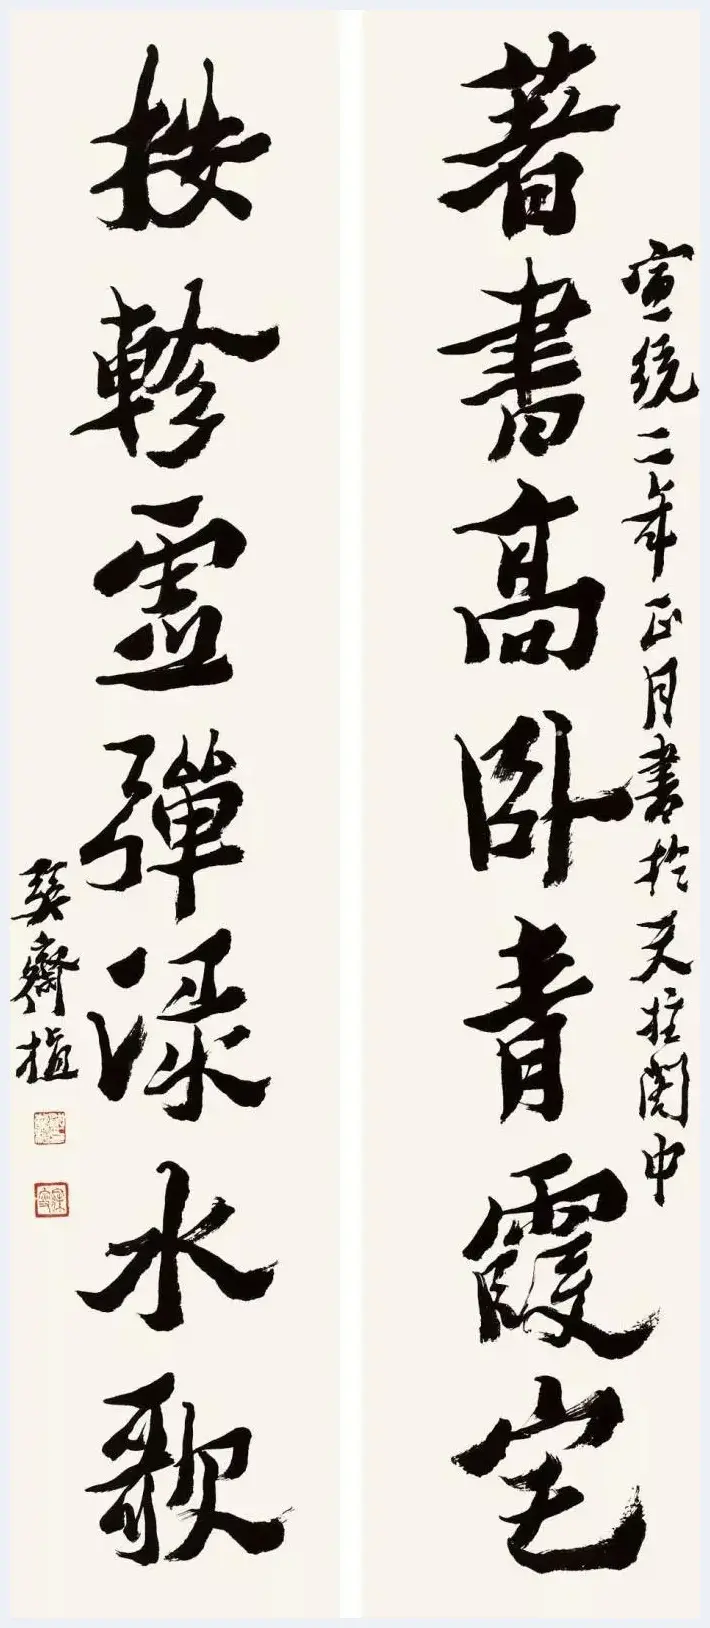 宣統二年正月書於天柱閣中
著書高卧青霞宅
按軫虛彈渌水歌
巽齋植